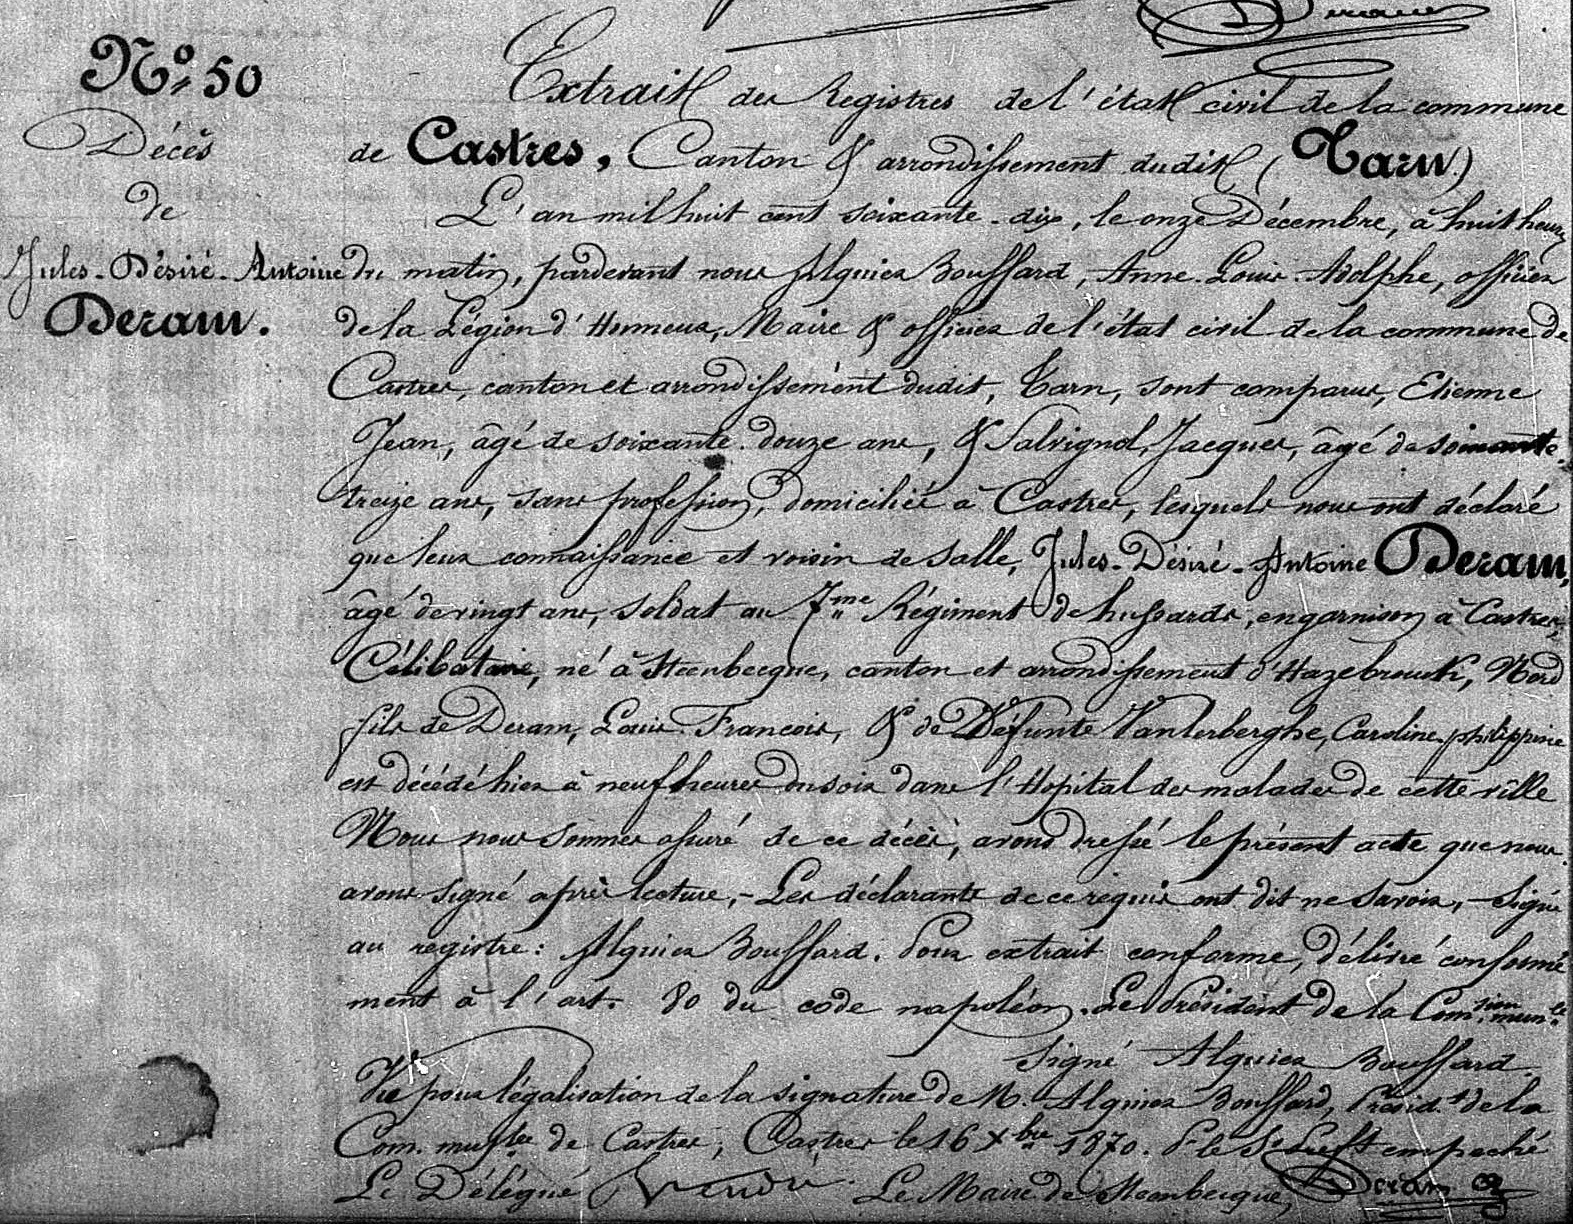 Deram
N° 50
Décès
de
Jules-Désiré-Antoine
Deram.
Extrait des Registres de l'état civil de la commune
de Castres, Canton & arrondissement dudit (Tarn)
L'an mil huit cent soixante-dix, le onze Décembre, à huit heures
du matin, pardevant nous Alquier Bouffard, Anne-Louis-Adolphe, officier
de la Légion d'Honneur, Maire & officier de l'état civil de la commune de
Castres, canton et arrondissement dudit, Tarn, sont comparus, Etienne
Jean, âgé de soixante-douze ans, & Salvignol, Jacques, âgé de soixante-
treize ans, sans profession, domiciliés à Castres, lesquels nous ont déclaré
que leur connaissance et voisin de salle, Jules-Désiré-Antoine Deram,
âgé de vingt ans, soldat au 7me Régiment de hussards, en garnison à Castres,
Célibataire, né à Steenbecque, canton et arrondissement d'Hazebrouck, Nord
fils de Deram, Louis François, & de Défunte Vanterberghe, Caroline philippine
est décédé hier à neuf heures du soir dans l'Hopital des malades de cette ville
Nous nous sommes assuré de ce décès, avons dressé le présent acte que nous
avons signé après lecture, - Les déclarants de ce requis ont dit ne savoir, - Signé
au registre: Alquier Bouffard. Pour extrait conforme, délivré conformé
ment à l'art. 80 du code napoléon. Le Président de la Comsion munle
Signé Alquier Bouffard.
Vu pour légalisation de la signature de M. Alquier Bouffard, Présidt de la
Com. munle de Castres, Castres le 16 Xbre 1870. P. le S. Préft empeché
Le Délégué Le Maire de Steenbecque, Deram